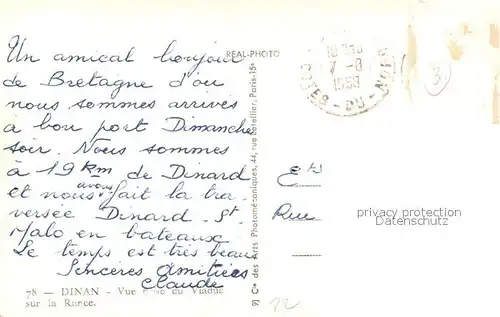 Un amical bonjour
de Bretagne d'où
nous sommes arrivés
à bon port Dimanche
soir. Nous sommes
à 19 km de Dinard
et nous avons fait la tra
versée Dinard. St.
Malo en bateaux
Le temps est très beau
Sincères Amitiés
Claude
78 — DINAN - Vue du Viaduc
sur la Rance.
REAL-PHOTO
Cie des Arts Photomécaniques, 44, rue Letellier, Paris-15e
CÔTES-DU-NORD
Ets
Rue
privacy protection
Datenschutz
3